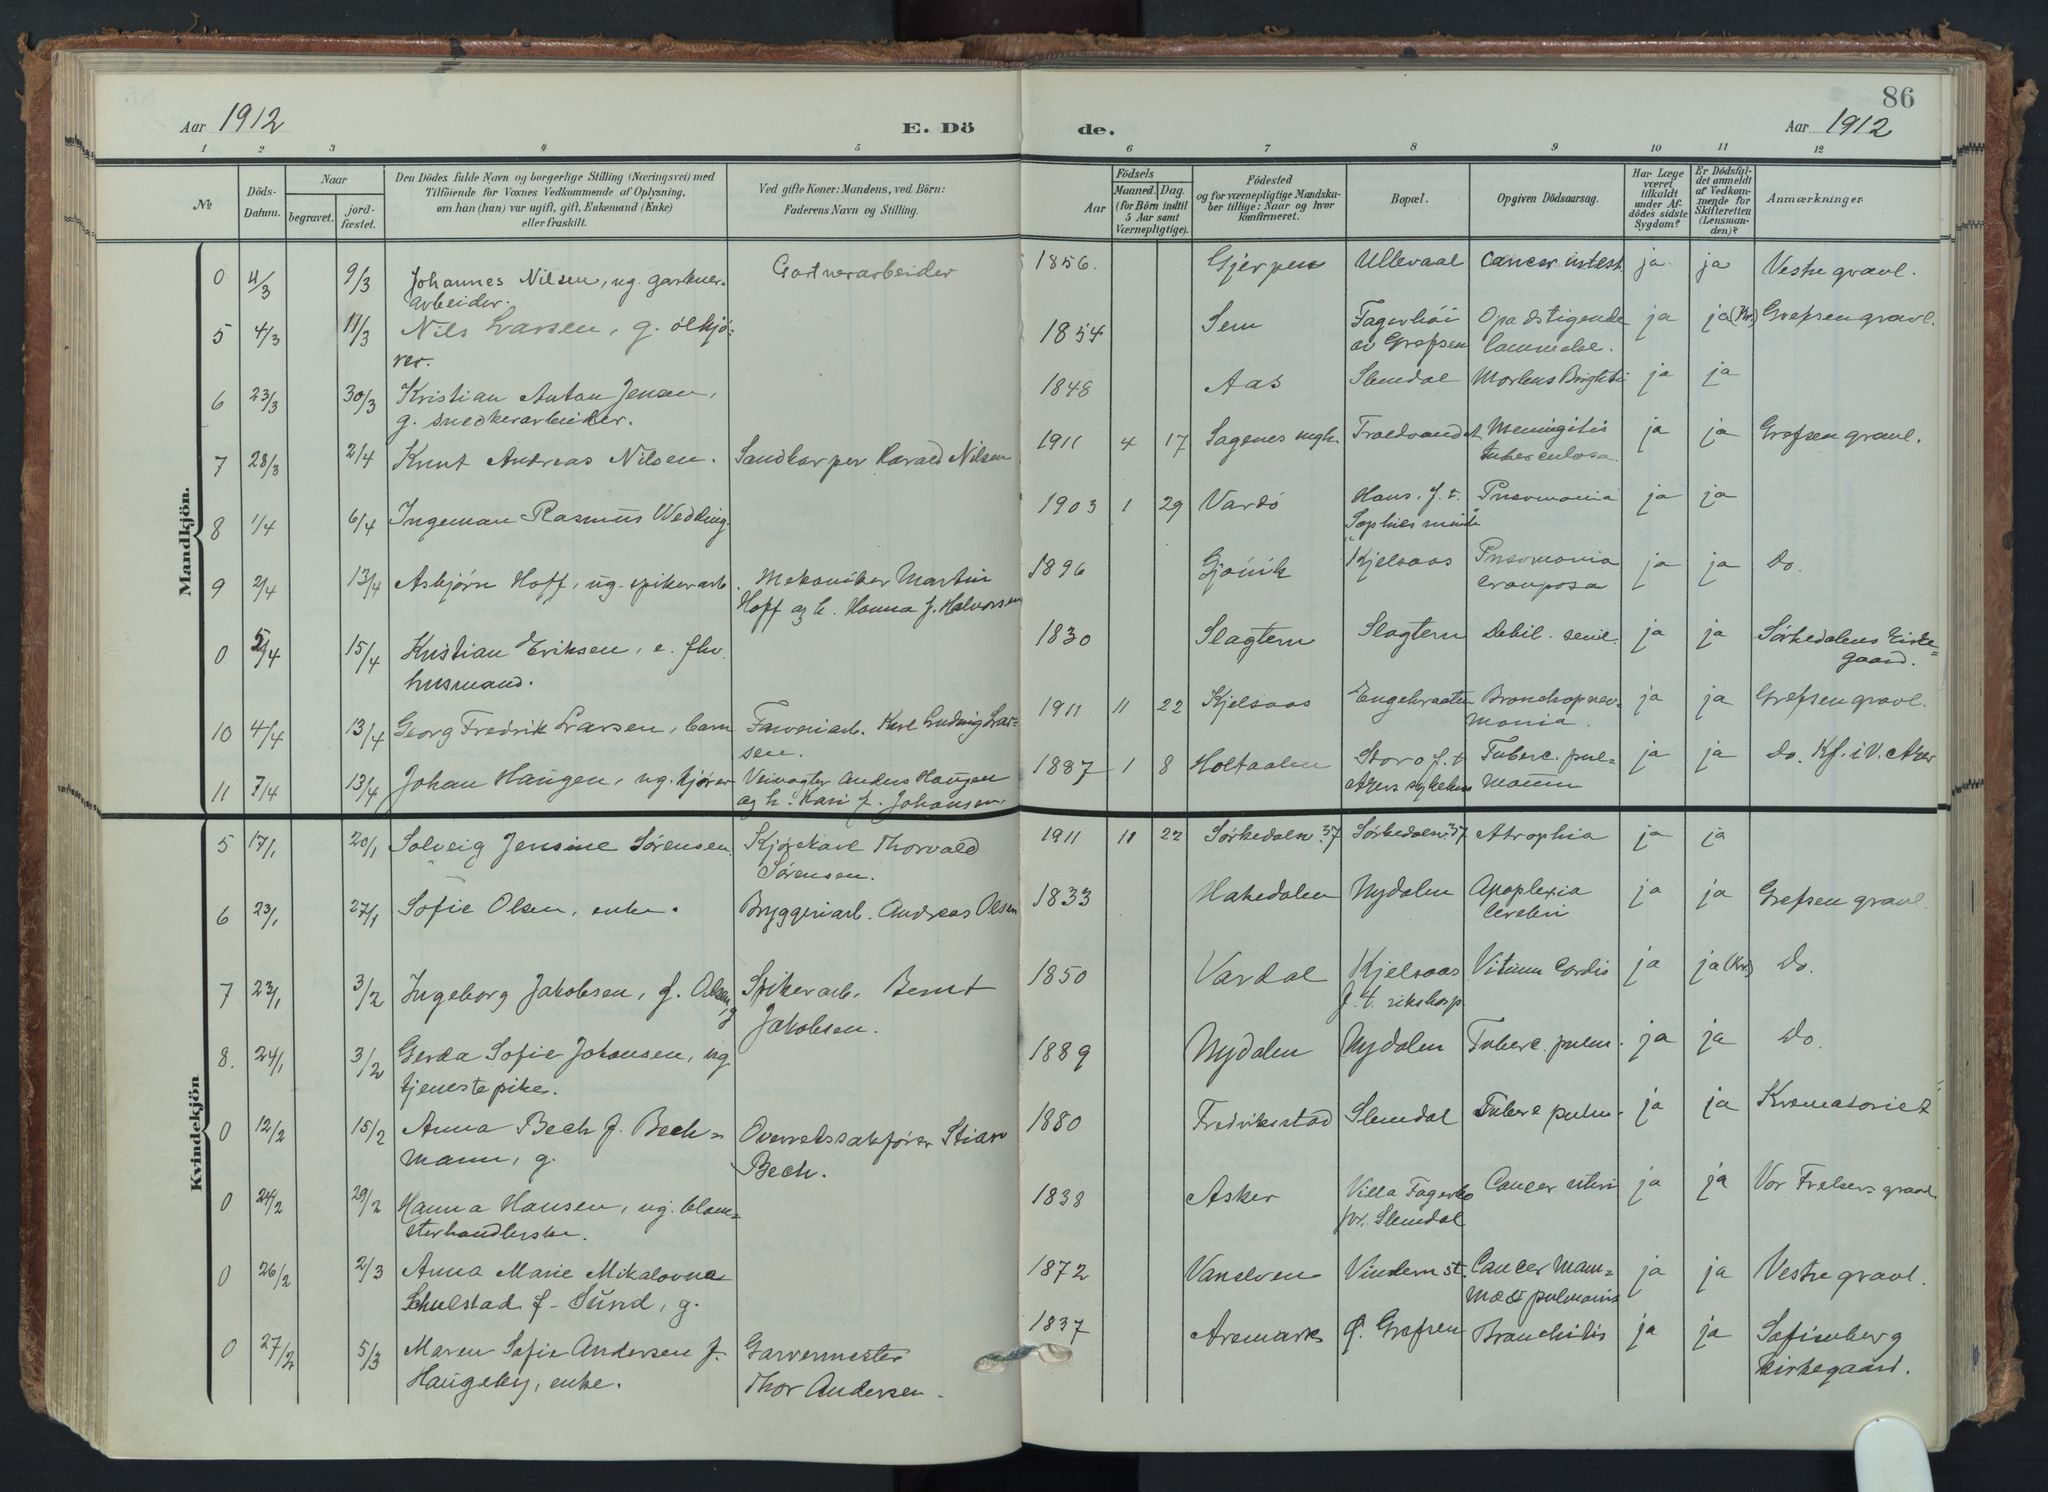 86
Aar 1912
E. Dö
de.
Aar 1912
1 2 3 4 5 6 7 8 9 10 11 12
№
Döds-
Datum.
Naar
begravet.
jord-
fæstet.
Den Dödes fulde Navn og borgerlige Stilling (Næringsvei) med
Tilföiende for Voxnes Vedkommende af Oplysning,
om han (hun) var ugift, gift, Enkemand (Enke)
eller fraskilt.
Ved gifte Koner: Mandens, ved Börn:
Faderens Navn og Stilling.
Födsels
Aar
Maaned. Dag.
(for Börn indtil
5 Aar samt
Værnepligtige).
Födested
og for værnepligtige Mandska-
ber tillige: Naar og hvor
konfirmeret.
Bopæl.
Opgiven Dödsaarsag.
Har Læge
været
tilkaldt
under Af-
dödes sidste
Sygdom?
Er Dödsfal-
det anmeldt
af Vedkom-
mende for
Skifteretten
(Lensman-
den)?
Anmærkninger
Mandkjön.
0 4/3 9/3 Johannes Nilsen, ug. gartner- Gartnerarbeider 1856. Gjerpen Ullevaal Cancer intest. ja ja Vestre gravl.
arbeider.
5 4/3 11/3 Nils Larsen, g. ølkjø- 1854 Sem Fagerhöi Opadstigende ja ja (Kr.) Grefsen gravl.
rer. av Grefsen lammelse.
6 23/3 30/3 Kristian Anton Jensen, 1848 Aas Slemdal Morbus Brightii ja ja
g. snedkerarbeider.
7 28/3 2/4 Knut Andreas Nilsen. Sandkar per Harald Nilsen 1911 4 17 Sagenes mgh. Troldvandet Meningitis ja ja Grefsen gravl.
tuberculosa.
8 1/4 6/4 Ingeman Rasmus Wedding. 1903 1 29 Vardö Hans. f. t. Pnevmonia ja ja
Sophies minde
9 2/4 13/4 Asbjørn Hoff, ug. spikerarb. Mekaniker Martin 1896 Gjövik Kjelsaas Pnevmonia ja ja Do.
Hoff og h. Hanna f. Halvorsen crouposa
0 5/4 15/4 Kristian Eriksen, e. fhv. 1830 Slagtern Slagtern Debil. senil. ja ja Sørkedalens kirke-
husmand. gaard.
10 4/4 13/4 Georg Fredrik Larsen, barn Farveriarb. Karl Ludvig Lar- 1911 11 22 Kjelsaas Engebraaten Bronchopnev- ja ja Grefsen gravl.
sen. monia.
11 7/4 13/4 Johan Haugen, ug. kjører Veivogter Anders Haugen 1887 1 8 Holtaalen Storo f. t. Tuberc. pul- ja ja Do. Kf. i V. Aker
og h. Kari f. Johansen. Akers sykehus monum
Kvindekjön
5 17/1 20/1 Solveig Jensine Sørensen. Kjørekarl Thorvald 1911 11 22 Sørkedalsv. 37 Sørkedalsv. 37 Atrophia ja ja
Sørensen.
6 23/1 27/1 Sofie Olsen, enke. Bryggeriarb. Andreas Olsen 1833 Hakedalen Nydalen Apoplexia ja ja Grefsen gravl.
Cerebri
7 23/1 3/2 Ingeborg Jakobsen, f. Olsen, g Spikerarb. Bernt 1850 Vardal Kjelsaas Vitium Cordis ja ja (Kr.) Do.
Jakobsen. f. t. rikshosp.
8. 24/1 3/2 Gerda Sofie Johansen, ug 1889 Nydalen Nydalen Tuberc. pulm. ja ja Do.
tjenestepike.
0 12/2 15/2 Anna Bech f. Bech- Overretssakfører Stian 1880 Fredrikstad Slemdal Tuberc pulm. ja ja Krematoriet
mann, g. Bech.
0 24/2 29/2 Hanna Hansen, ug. blom- 1838 Asker Villa Fagerbo Cancer uteri ja ja Vor Frelsers gravl
sterhandlerske. pr. Slemdal
0 26/2 2/3 Anna Marie Mikalovna 1872 Vanelven Vindern st. Cancer mam- ja ja Vestre gravl.
Schulstad f. Sund, g. mæ et pulmonis
0 27/2 5/3 Maren Sofie Andersen f. Garvermester 1837 Aremark Ø. Grefsen Bronchitis ja ja Sofienberg
Haugeby, enke. Thor Andersen. kirkegaard.